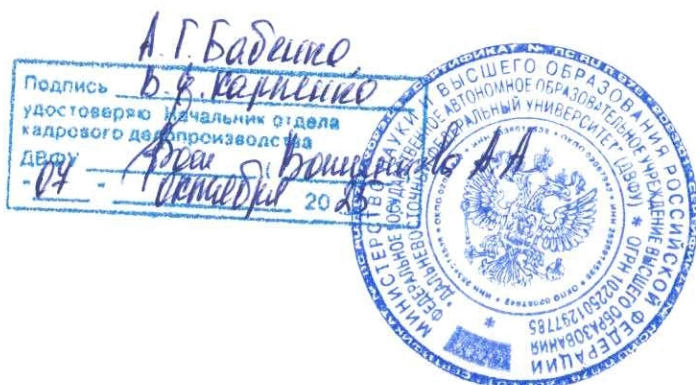 А. Г. Бабенко
Подпись В. Ф. Карпенко
удостоверяю Начальник отдела
кадрового делопроизводства
ДВФУ А А
- 07 - октября 20
МИНИСТЕРСТВО НАУКИ И ВЫСШЕГО ОБРАЗОВАНИЯ РОССИЙСКОЙ ФЕДЕРАЦИИ
ФЕДЕРАЛЬНОЕ ГОСУДАРСТВЕННОЕ АВТОНОМНОЕ ОБРАЗОВАТЕЛЬНОЕ УЧРЕЖДЕНИЕ ВЫСШЕГО ОБРАЗОВАНИЯ
* ДАЛЬНЕВОСТОЧНЫЙ ФЕДЕРАЛЬНЫЙ УНИВЕРСИТЕТ" (ДВФУ) * ОГРН 1022501297785